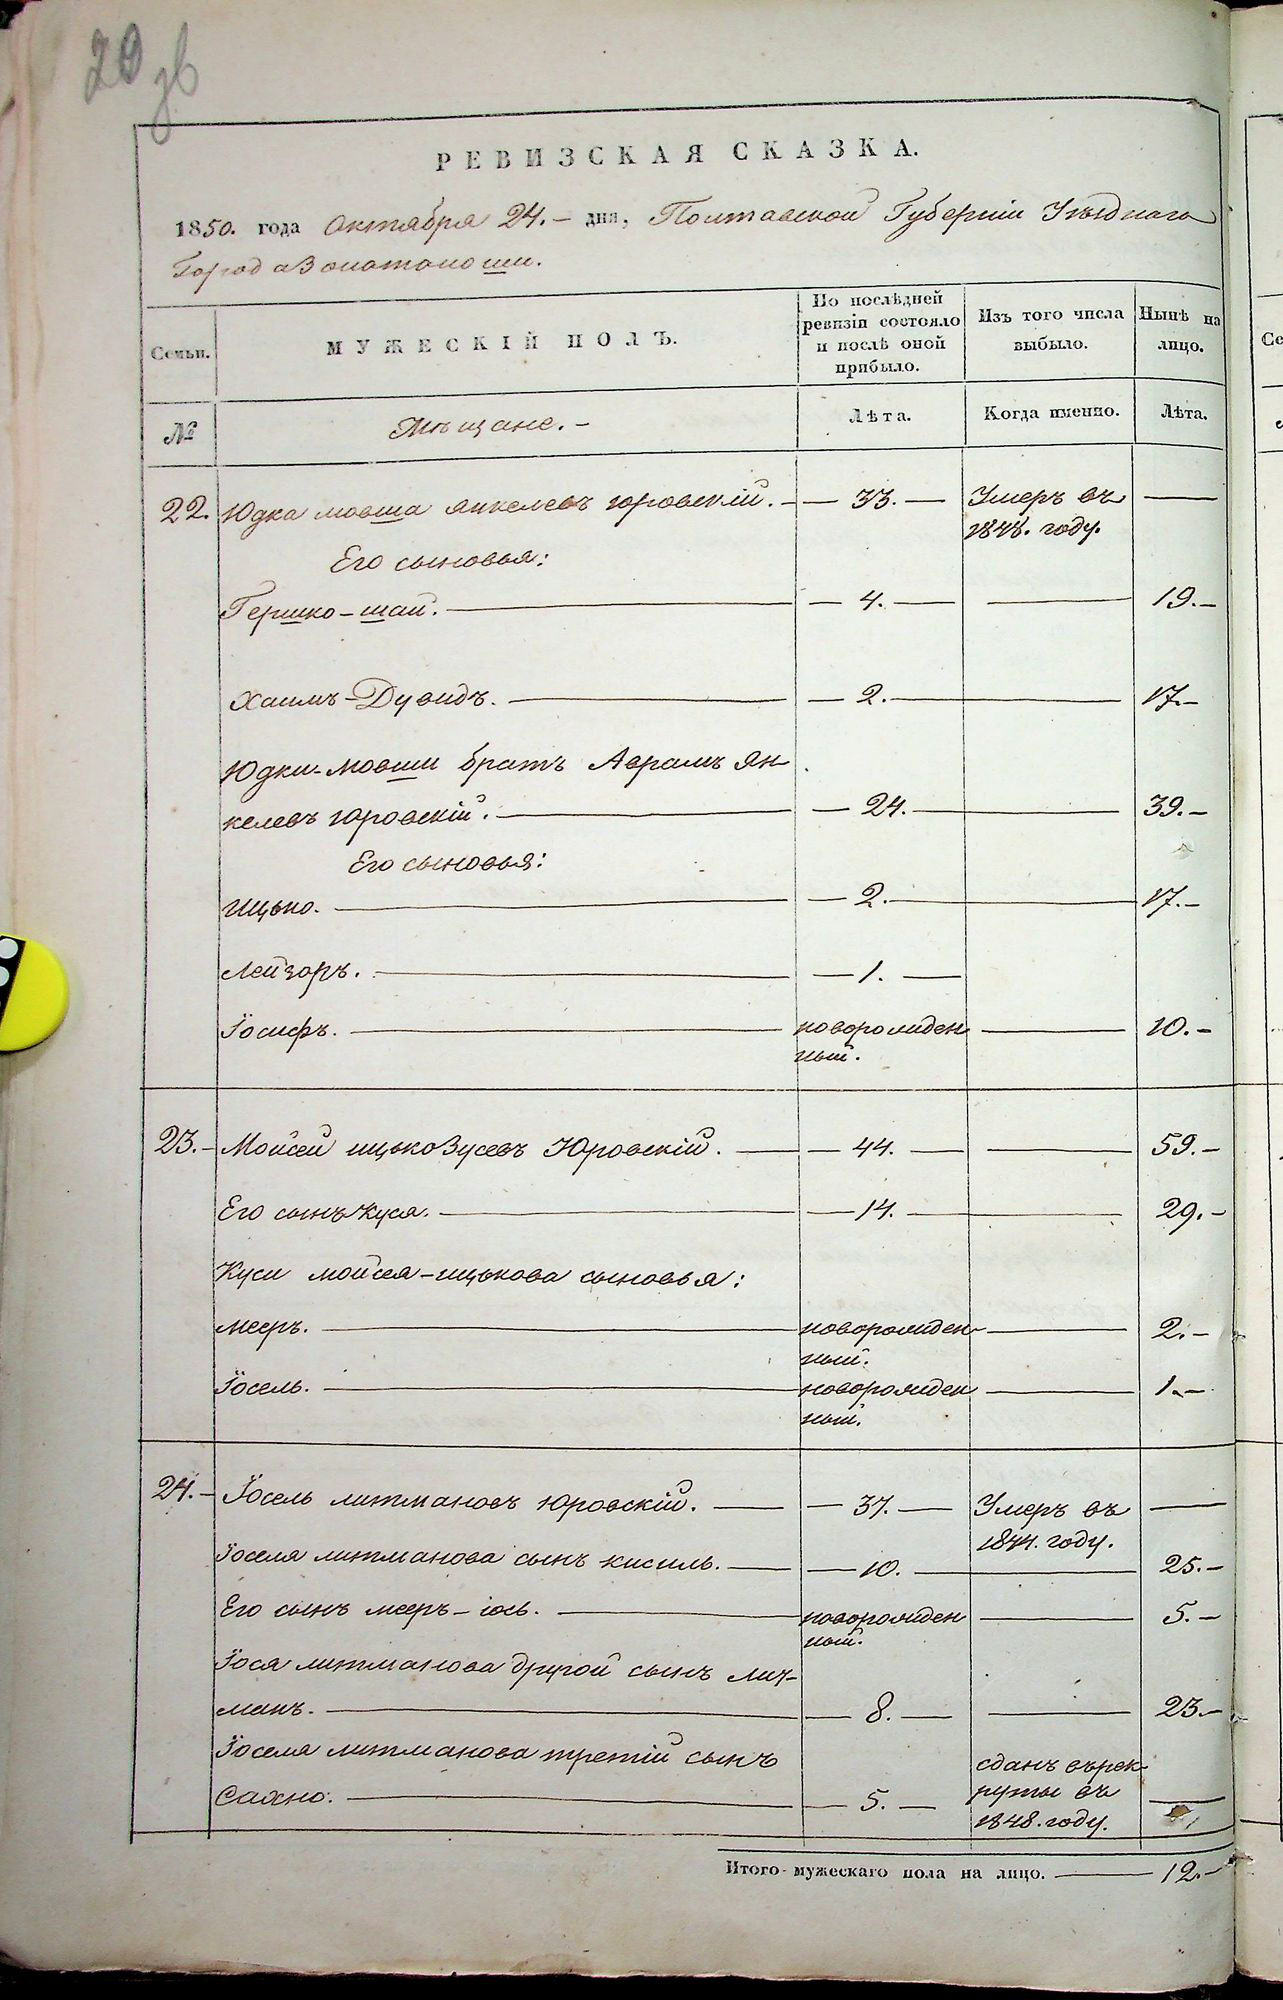 29 зв
РЕВИЗСКАЯ СКАЗКА.
1850. года Октября 24.– дня, Полтавской Губерніи Уѣзднаго
Города Золотоноши.
Семьи.
МУЖЕСКІЙ ПОЛЪ.
По послѣдней ревизіи состояло и послѣ оной прибыло.
Изъ того числа выбыло.
Нынѣ на лицо.
№
Мѣщане.–
Лѣта.
Когда именно.
Лѣта.
22. Юдка мовша янкелевъ юровскій. — 33. — Умеръ въ —
1848. году.
Его сыновья:
Гершко-шай. — 4. — — 19.–
Хаимъ-Дувидъ. — 2. — 17.–
Юдки-мовши братъ Аврамъ Ян-
келевъ юровскій. — 24. — 39.–
Его сыновья:
ицько. — 2. — 17.–
лейзоръ. — 1. —
Іосифъ. — новорожден — 10.–
ный.
23.– Мойсей ицькоЗусевъ Юровскій. — 44. — — 59.–
Его сынъ куся. — 14. — 29.–
Куси мойсея-ицькова сыновья:
мееръ. — новорожден — 2.–
ный.
Іосель. — новорожден — 1.–
ный.
24.– Іосель литмановъ юровскій. — 37. — Умеръ въ —
1844. году.
Іоселя литманова сынъ кисиль. — 10. — 25.–
Его сынъ мееръ-іось. — новорожден — 5.–
ный.
Іося литманова другой сынъ лит-
манъ. — 8. — — 23.–
Іоселя литманова третій сынъ
Сахно. — 5. — сданъ върек-
руты въ —
1848. году.
Итого мужескаго пола на лицо. — 12.–